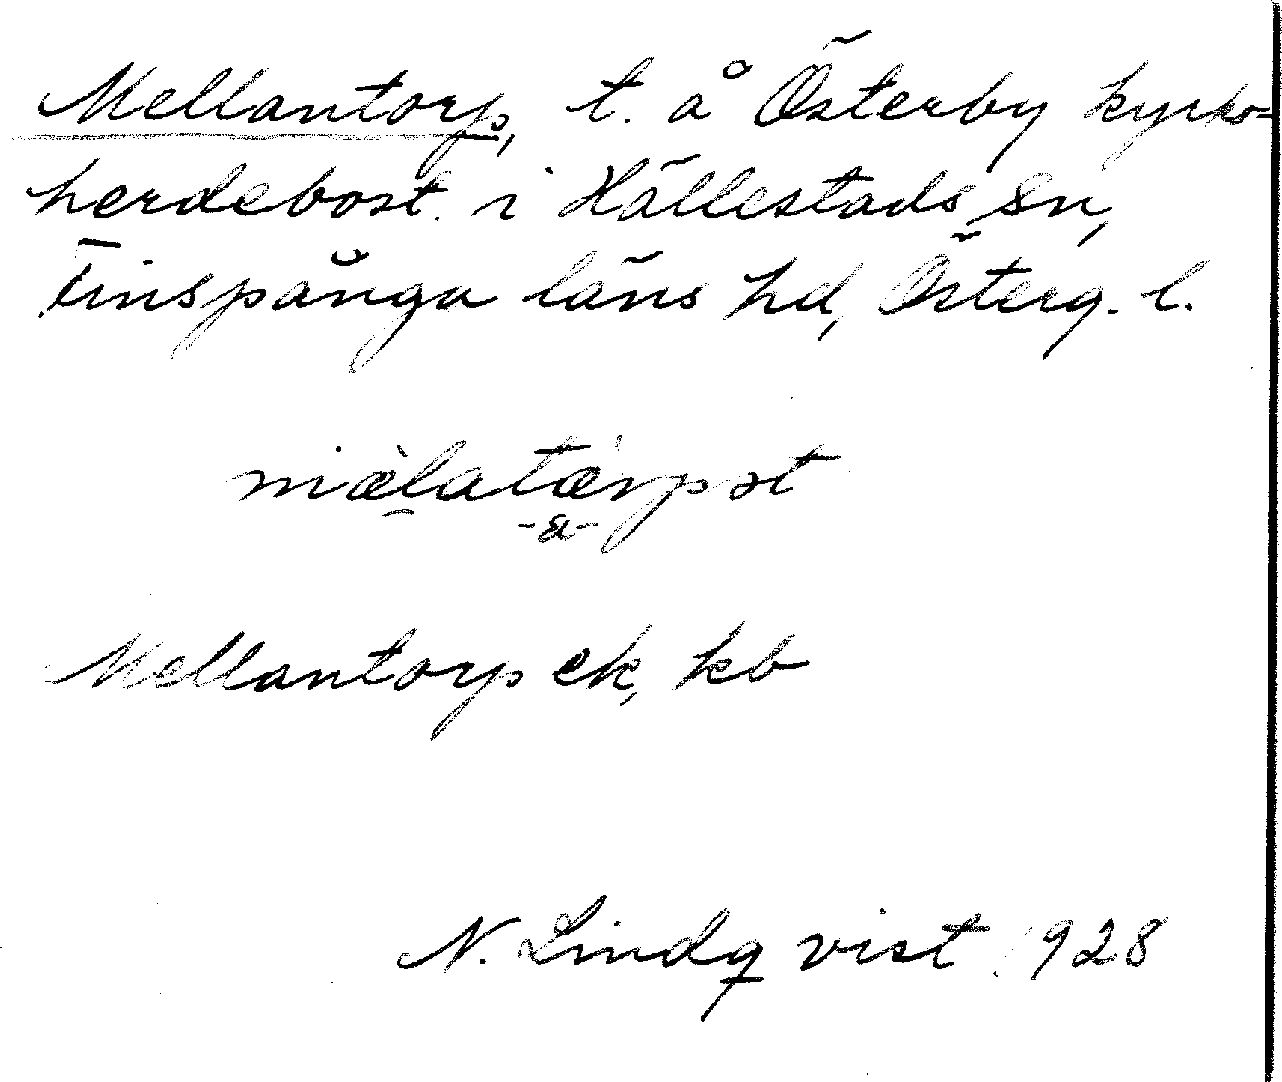 Mellantorp, t. å Österby kyrko-
herdebost. i Hällestads sn,
Finspånga läns hd, Österg. l.
mæ̀latærpət
-a-
Mellantorp ek, kb
N. Lindqvist 1928